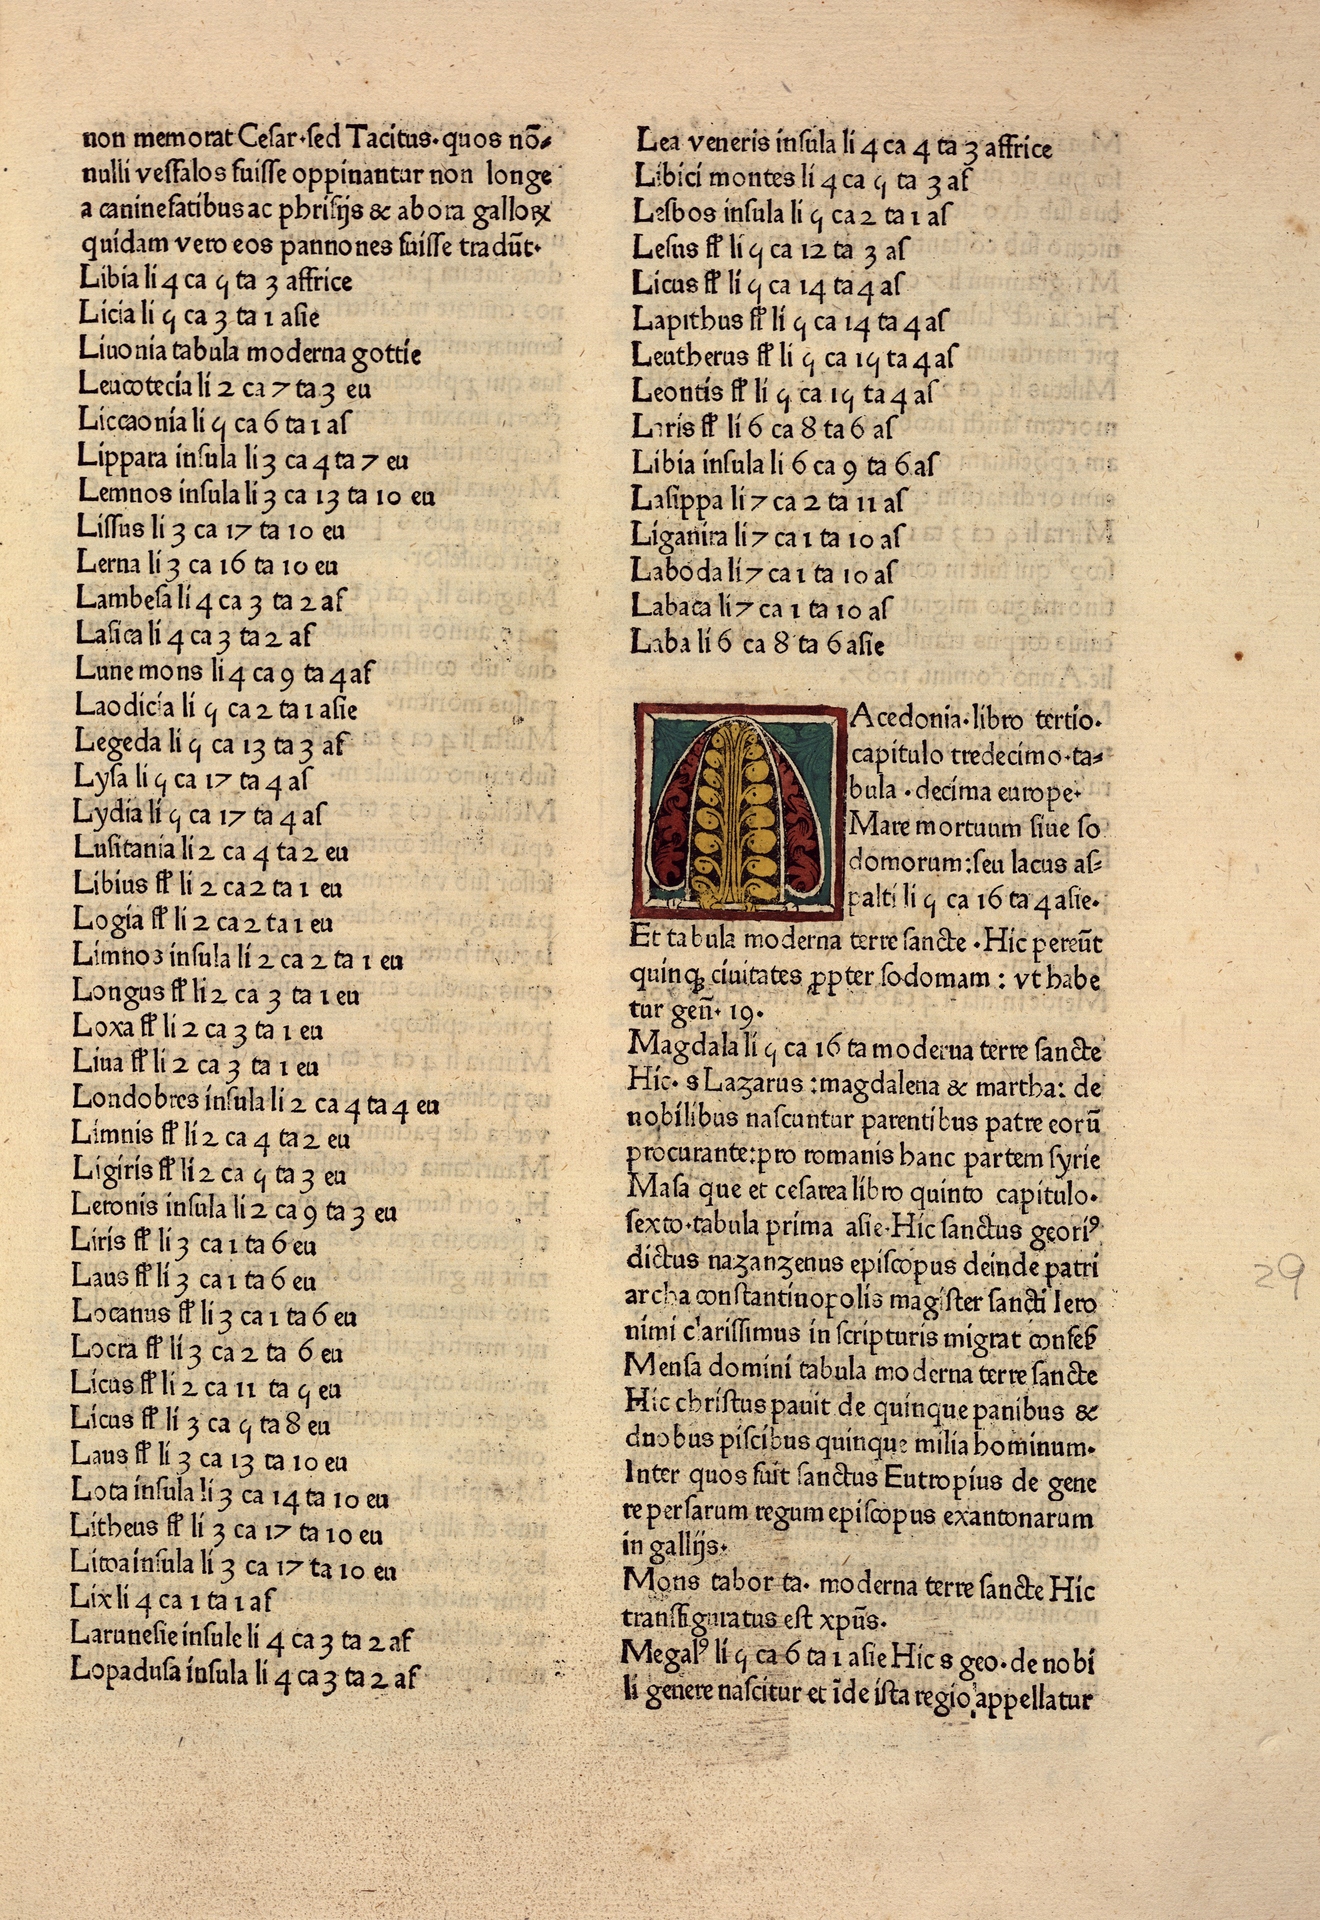 non memorat Cesar·sed Tacitus·quos nō⸗
nulli vessalos fuisse oppinantur non longe
a caninefatibus ac phrisijs & ab ora galloꝝ
quidam vero eos pannones fuisse tradūt·
Libia li 4 ca 5 ta 3 affrice
Licia li 5 ca 3 ta 1 asie
Liuonia tabula moderna gottie
Leucotecia li 2 ca 7 ta 3 eu
Liccaonia li 5 ca 6 ta 1 as
Lippara insula li 3 ca 4 ta 7 eu
Lemnos insula li 3 ca 13 ta 10 eu
Lissus li 3 ca 17 ta 10 eu
Lerna li 3 ca 16 ta 10 eu
Lambesa li 4 ca 3 ta 2 af
Lasica li 4 ca 3 ta 2 af
Lune mons li 4 ca 9 ta 4 af
Laodicia li 5 ca 2 ta 1 asie
Legeda li 5 ca 13 ta 3 af
Lysa li 5 ca 17 ta 4 as
Lydia li 5 ca 17 ta 4 as
Lusitania li 2 ca 4 ta 2 eu
Libius fł li 2 ca 2 ta 1 eu
Logia fł li 2 ca 2 ta 1 eu
Limnos insula li 2 ca 2 ta 1 eu
Longus fł li 2 ca 3 ta 1 eu
Loxa fł li 2 ca 3 ta 1 eu
Liua fł li 2 ca 3 ta 1 eu
Londobres insula li 2 ca 4 ta 4 eu
Limnis fł li 2 ca 4 ta 2 eu
Ligiris fł li 2 ca 5 ta 3 eu
Leronis insula li 2 ca 9 ta 3 eu
Liris fł li 3 ca 1 ta 6 eu
Laus fł li 3 ca 1 ta 6 eu
Locanus fł li 3 ca 1 ta 6 eu
Locra fł li 3 ca 2 ta 6 eu
Licus fł li 2 ca 11 ta 5 eu
Licus fł li 3 ca 5 ta 8 eu
Laus fł li 3 ca 13 ta 10 eu
Lota insula li 3 ca 14 ta 10 eu
Litheus fł li 3 ca 17 ta 10 eu
Litoa insula li 3 ca 17 ta 10 eu
Lix li 4 ca 1 ta 1 af
Larunesie insule li 4 ca 3 ta 2 af
Lopadusa insula li 4 ca 3 ta 2 af
Lea veneris insula li 4 ca 4 ta 3 affrice
Libici montes li 4 ca 5 ta 3 af
Lesbos insula li 5 ca 2 ta 1 as
Lesus fł li 5 ca 12 ta 3 as
Licus fł li 5 ca 14 ta 4 as
Lapithus fł li 5 ca 14 ta 4 as
Leutherus fł li 5 ca 15 ta 4 as
Leontis fł li 5 ca 15 ta 4 as
Laris fł li 6 ca 8 ta 6 as
Libia insula li 6 ca 9 ta 6 as
Lasippa li 7 ca 2 ta 11 as
Liganira li 7 ca 1 ta 10 as
Laboda li 7 ca 1 ta 10 as
Labaca li 7 ca 1 ta 10 as
Laba li 6 ca 8 ta 6 asie
MAcedonia·libro tertio·
capitulo tredecimo·ta⸗
bula·decima europe·
Mare mortuum siue so
domorum:seu lacus as⸗
palti li 5 ca 16 ta 4 asie·
Et tabula moderna terre sancte·Hic pereūt
quinqꝫ ciuitates ꝓpter sodomam: vt habe
tur geñ· 19·
Magdala li 5 ca 16 ta moderna terre sancte
Hic· s Lazarus:magdalena & martha: de
nobilibus nascuntur parentibus patre eorū
procurante:pro romanis hanc partem syrie
Masa que et cesarea libro quinto capitulo·
sexto·tabula prima asie·Hic sanctus georiꝰ
dictus nazanzenus episcopus deinde patri
archa constantinopolis magister sancti Iero
nimi clarissimus in scripturis migrat confes̄
Mensa domini tabula moderna terre sancte
Hic christus pauit de quinque panibus &
duobus piscibus quinque milia hominum·
Inter quos fuit sanctus Eutropius de gene
re persarum regum episcopus exantonarum
in gallijs·
Mons tabor ta· moderna terre sancte Hic
transfiguratus est xp̄us·
Megalꝰ li 5 ca 6 ta 1 asie Hic s geo·de nobi
li genere nascitur et īde ista regio appellatur
29